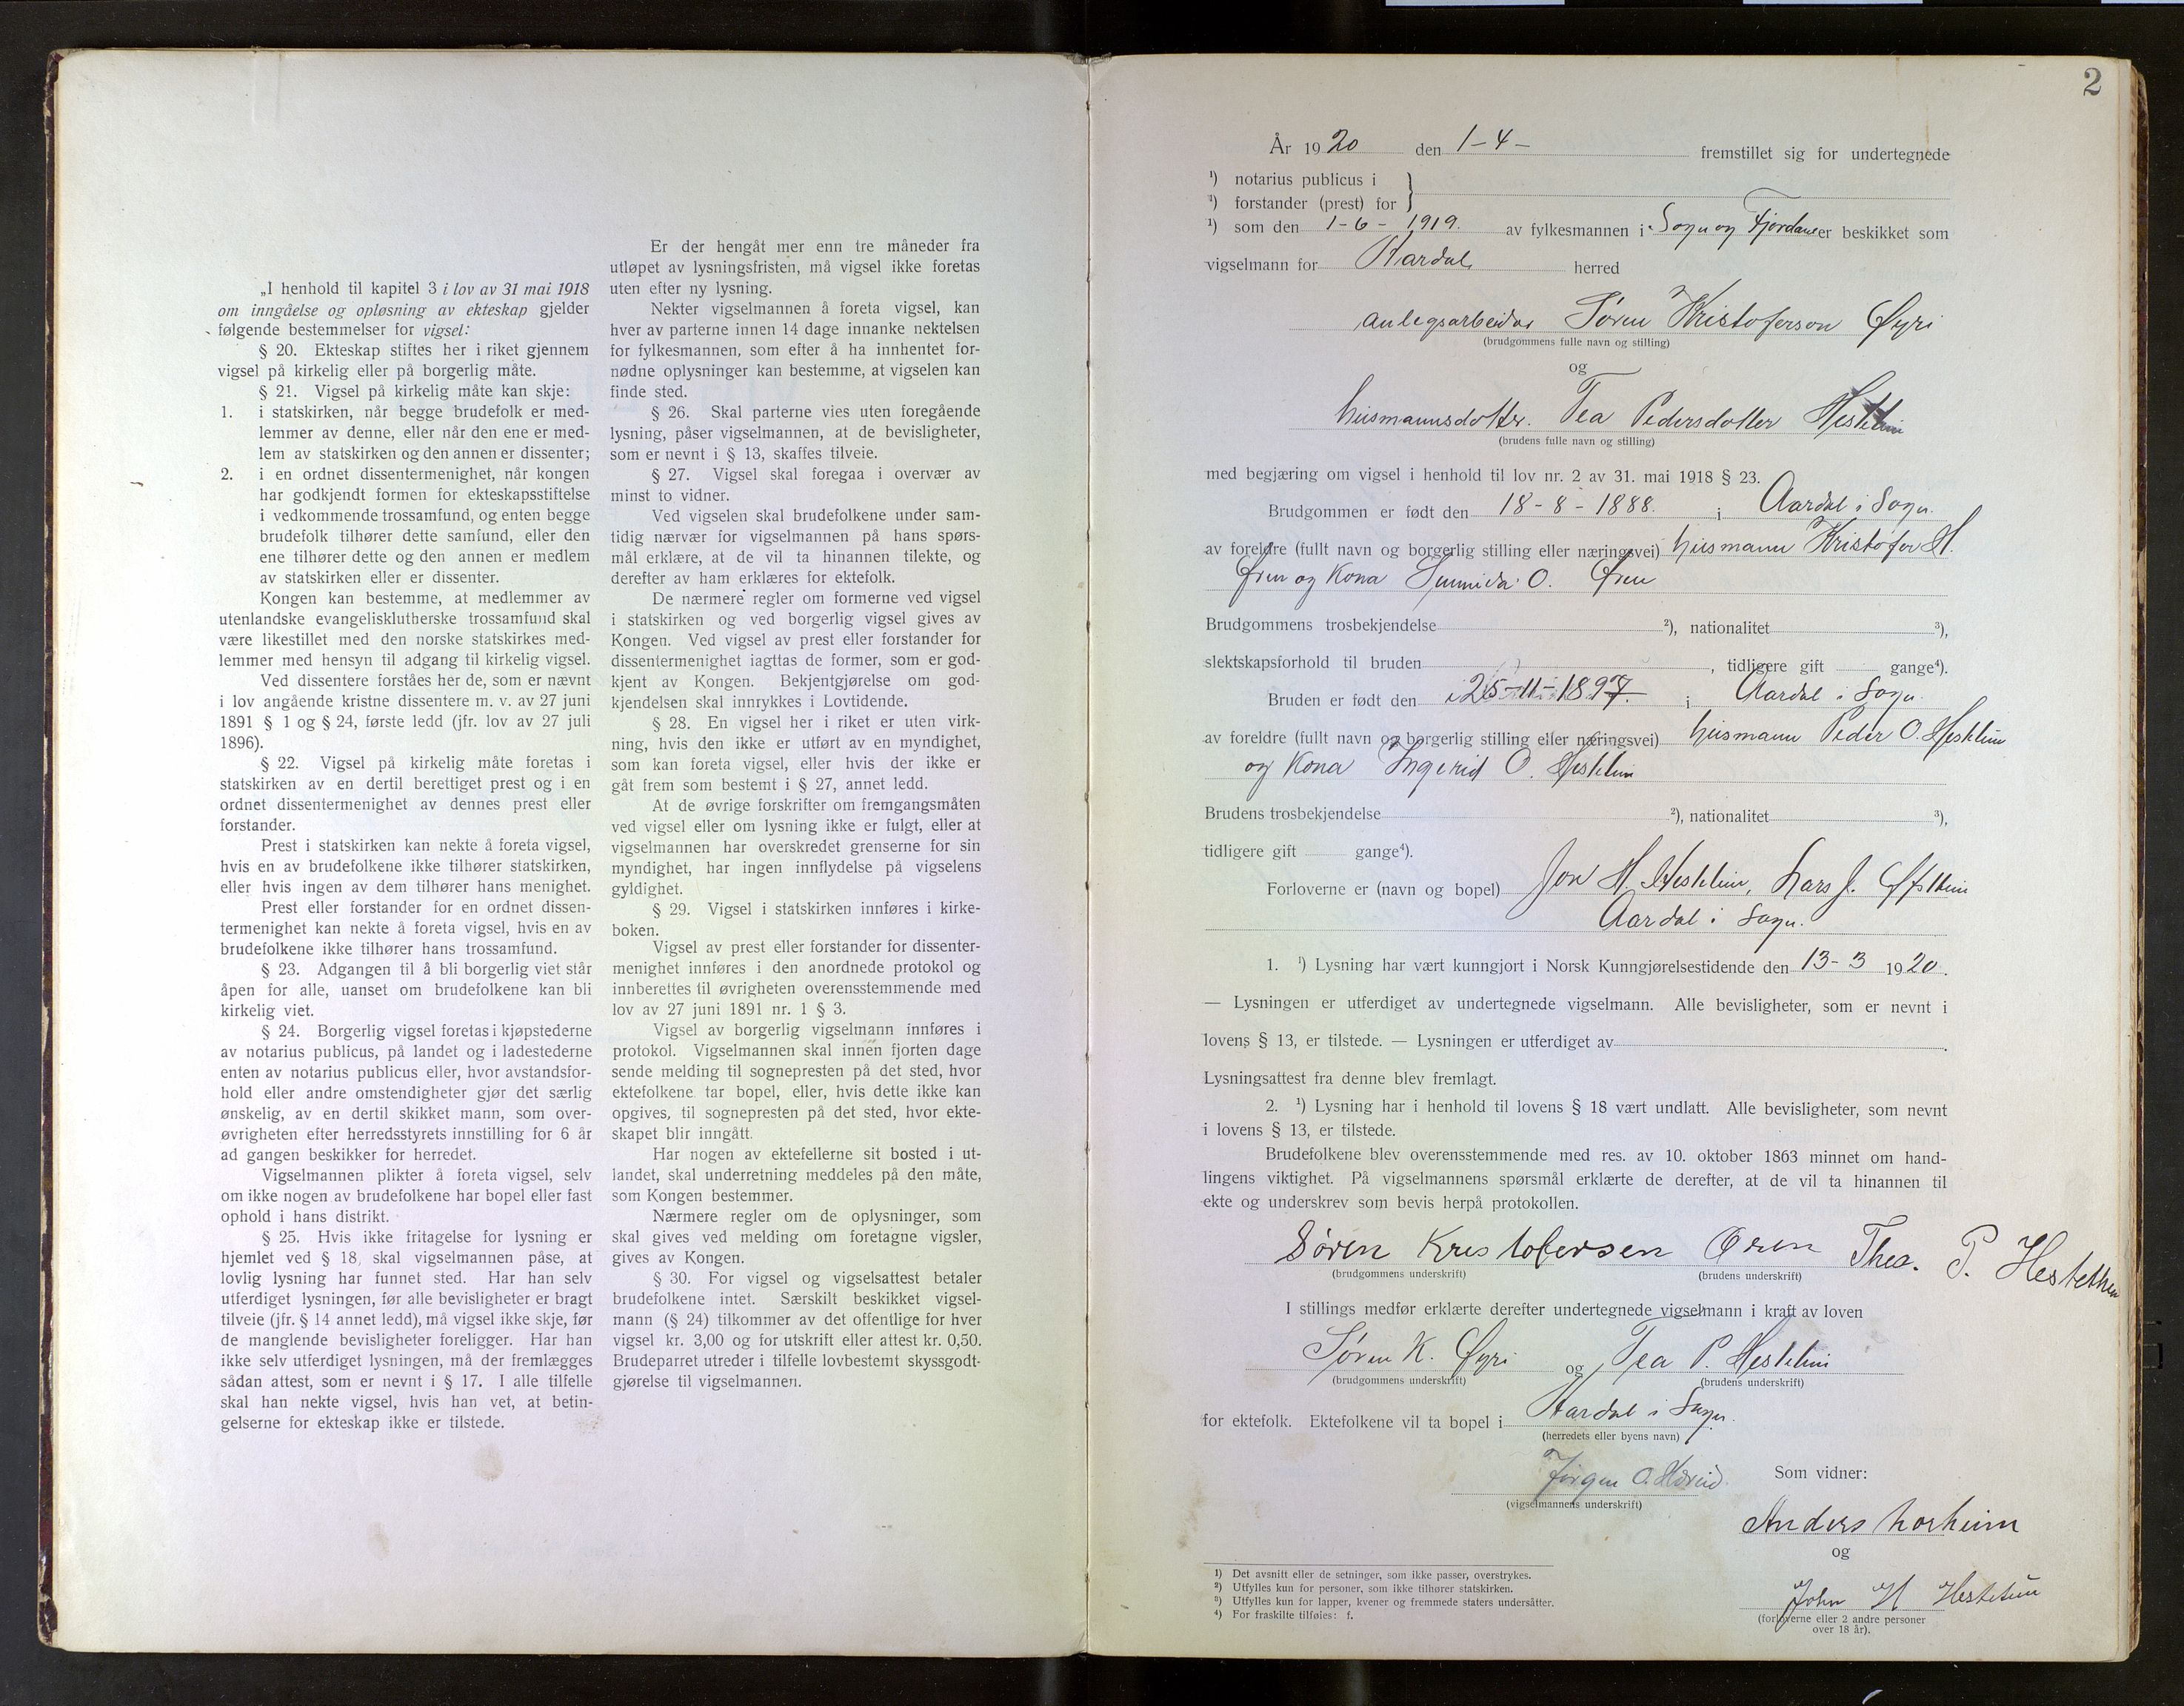 „I henhold til kapitel 3 i lov av 31 mai 1918
om inngåelse og opløsning av ekteskap gjelder
følgende bestemmelser for vigsel:
§ 20. Ekteskap stiftes her i riket gjennem
vigsel på kirkelig eller på borgerlig måte.
§ 21. Vigsel på kirkelig måte kan skje:
1. i statskirken, når begge brudefolk er med-
lemmer av denne, eller når den ene er med-
lem av statskirken og den annen er dissenter;
2. i en ordnet dissentermenighet, når kongen
har godkjendt formen for ekteskapsstiftelse
i vedkommende trossamfund, og enten begge
brudefolk tilhører dette samfund, eller den
ene tilhører dette og den annen er medlem
av statskirken eller er dissenter.
Kongen kan bestemme, at medlemmer av
utenlandske evangelisklutherske trossamfund skal
være likestillet med den norske statskirkes med-
lemmer med hensyn til adgang til kirkelig vigsel.
Ved dissentere forståes her de, som er nævnt
i lov angående kristne dissentere m. v. av 27 juni
1891 § 1 og § 24, første ledd (jfr. lov av 27 juli
1896).
§ 22. Vigsel på kirkelig måte foretas i
statskirken av en dertil berettiget prest og i en
ordnet dissentermenighet av dennes prest eller
forstander.
Prest i statskirken kan nekte å foreta vigsel,
hvis en av brudefolkene ikke tilhører statskirken,
eller hvis ingen av dem tilhører hans menighet.
Prest eller forstander for en ordnet dissen-
termenighet kan nekte å foreta vigsel, hvis en av
brudefolkene ikke tilhører hans trossamfund.
§ 23. Adgangen til å bli borgerlig viet står
åpen for alle, uanset om brudefolkene kan bli
kirkelig viet.
§ 24. Borgerlig vigsel foretas i kjøpstederne
av notarius publicus, på landet og i ladestederne
enten av notarius publicus eller, hvor avstandsfor-
hold eller andre omstendigheter gjør det særlig
ønskelig, av en dertil skikket mann, som over-
øvrigheten efter herredsstyrets innstilling for 6 år
ad gangen beskikker for herredet.
Vigselmannen plikter å foreta vigsel, selv
om ikke nogen av brudefolkene har bopel eller fast
ophold i hans distrikt.
§ 25. Hvis ikke fritagelse for lysning er
hjemlet ved § 18, skal vigselmannen påse, at
lovlig lysning har funnet sted. Har han selv
utferdiget lysningen, før alle bevisligheter er bragt
tilveie (jfr. § 14 annet ledd), må vigsel ikke skje, før
de manglende bevisligheter foreligger. Har han
ikke selv utferdiget lysningen, må der fremlægges
sådan attest, som er nevnt i § 17. I alle tilfelle
skal han nekte vigsel, hvis han vet, at betin-
gelserne for ekteskap ikke er tilstede.
Er der hengåt mer enn tre måneder fra
utløpet av lysningsfristen, må vigsel ikke foretas
uten efter ny lysning.
Nekter vigselmannen å foreta vigsel, kan
hver av parterne innen 14 dage innanke nektelsen
for fylkesmannen, som efter å ha innhentet for-
nødne oplysninger kan bestemme, at vigselen kan
finde sted.
§ 26. Skal parterne vies uten foregående
lysning, påser vigselmannen, at de bevisligheter,
som er nevnt i § 13, skaffes tilveie.
§ 27. Vigsel skal foregaa i overvær av
minst to vidner.
Ved vigselen skal brudefolkene under sam-
tidig nærvær for vigselmannen på hans spørs-
mål erklære, at de vil ta hinannen tilekte, og
derefter av ham erklæres for ektefolk.
De nærmere regler om formerne ved vigsel
i statskirken og ved borgerlig vigsel gives av
Kongen. Ved vigsel av prest eller forstander for
dissentermenighet iagttas de former, som er god-
kjent av Kongen. Bekjentgjørelse om god-
kjendelsen skal innrykkes i Lovtidende.
§ 28. En vigsel her i riket er uten virk-
ning, hvis den ikke er utført av en myndighet,
som kan foreta vigsel, eller hvis der ikke er
gåt frem som bestemt i § 27, annet ledd.
At de øvrige forskrifter om fremgangsmåten
ved vigsel eller om lysning ikke er fulgt, eller at
vigselmannen har overskredet grenserne for sin
myndighet, har ingen innflydelse på vigselens
gyldighet.
§ 29. Vigsel i statskirken innføres i kirke-
boken.
Vigsel av prest eller forstander for dissenter-
menighet innføres i den anordnede protokol og
innberettes til øvrigheten overensstemmende med
lov av 27 juni 1891 nr. 1 § 3.
Vigsel av borgerlig vigselmann innføres i
protokol. Vigselmannen skal innen fjorten dage
sende melding til sognepresten på det sted, hvor
ektefolkene tar bopel, eller, hvis dette ikke kan
opgives, til sognepresten på det sted, hvor ekte-
skapet blir inngått.
Har nogen av ektefellerne sit bosted i ut-
landet, skal underretning meddeles på den måte,
som Kongen bestemmer.
Nærmere regler om de oplysninger, som
skal gives ved melding om foretagne vigsler,
gives av Kongen.
§ 30. For vigsel og vigselsattest betaler
brudefolkene intet. Særskilt beskikket vigsel-
mann (§ 24) tilkommer av det offentlige for hver
vigsel kr. 3,00 og for utskrift eller attest kr. 0,50.
Brudeparret utreder i tilfelle lovbestemt skyssgodt-
gjørelse til vigselmannen.
2
År 1920 den 1-4- fremstillet sig for undertegnede
¹) notarius publicus i
¹) forstander (prest) for
¹) som den 1-6-1919. av fylkesmannen i Sogn og Fjordane er beskikket som
vigselmann for Aardal herred
anlegsarbeidar Søren Kristoferson Øyri
(brudgommens fulle navn og stilling)
og
husmannsdotter. Tea Pedersdotter Hestetun
(brudens fulle navn og stilling)
med begjæring om vigsel i henhold til lov nr. 2 av 31. mai 1918 § 23.
Brudgommen er født den 18-8-1888. i Aardal i Sogn.
av foreldre (fullt navn og borgerlig stilling eller næringsvei) husmann Kristofer H.
Øren og Kona O. Øren
Brudgommens trosbekjendelse ²), nationalitet ³),
slektskapsforhold til bruden , tidligere gift gange⁴).
Bruden er født den 25-11-1897. i Aardal i Sogn.
av foreldre (fullt navn og borgerlig stilling eller næringsvei) husmann Peder O. Hestetun
og Kona Ingerid O. Hestetun
Brudens trosbekjendelse ²), nationalitet ³),
tidligere gift gange⁴).
Forloverne er (navn og bopel) Jon H. Hestetun, Lars J.
Aardal i Sogn.
1. ¹) Lysning har vært kunngjort i Norsk Kunngjørelsestidende den 13-3 1920.
— Lysningen er utferdiget av undertegnede vigselmann. Alle bevisligheter, som er nevnt i
lovens § 13, er tilstede. — Lysningen er utferdiget av .
Lysningsattest fra denne blev fremlagt.
2. ¹) Lysning har i henhold til lovens § 18 vært undlatt. Alle bevisligheter, som nevnt
i lovens § 13, er tilstede.
Brudefolkene blev overensstemmende med res. av 10. oktober 1863 minnet om hand-
lingens viktighet. På vigselmannens spørsmål erklærte de derefter, at de vil ta hinannen til
ekte og underskrev som bevis herpå protokollen.
Søren Kristofersen Øren Thea. P. Hestethun
(brudgommens underskrift) (brudens underskrift)
I stillings medfør erklærte derefter undertegnede vigselmann i kraft av loven
Søren K. Øyri og Tea P. Hestetun
(brudgommens underskrift) (brudens underskrift)
for ektefolk. Ektefolkene vil ta bopel i Aardal i Sogn.
(herredets eller byens navn)
Jørgen O. Hæreid.
(vigselmannens underskrift)
Som vidner:
Anders
og
John H Hestetun
(forloverne eller 2 andre personer
over 18 år).
¹) Det avsnitt eller de setninger, som ikke passer, overstrykes.
²) Utfylles kun for personer, som ikke tilhører statskirken.
³) Utfylles kun for lapper, kvener og fremmede staters undersåtter.
⁴) For fraskilte tilføies: f.